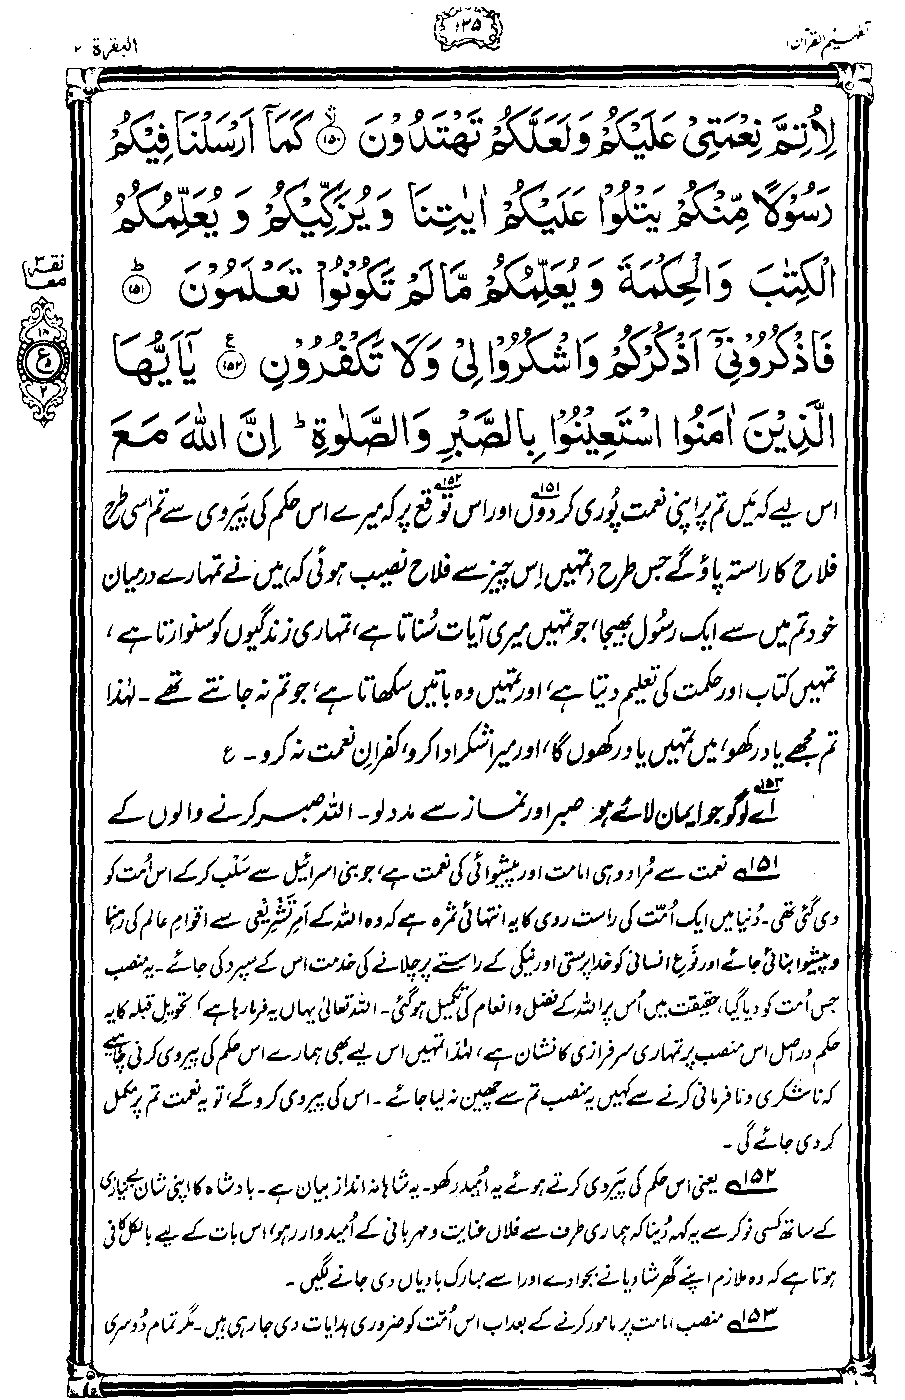 تفہیم القرآن ۱
۱۲۵
البقرة ۲
لِأُتِمَّ نِعْمَتِیْ عَلَیْكُمْ وَلَعَلَّكُمْ تَهْتَدُوْنَ ﴿۱۵۰﴾ كَمَاۤ اَرْسَلْنَا فِیْكُمْ
رَسُوْلًا مِّنْكُمْ یَتْلُوْا عَلَیْكُمْ اٰیٰتِنَا وَیُزَكِّیْكُمْ وَیُعَلِّمُكُمُ
الْكِتٰبَ وَالْحِكْمَةَ وَیُعَلِّمُكُمْ مَّا لَمْ تَكُوْنُوْا تَعْلَمُوْنَ ﴿۱۵۱﴾ؕ
فَاذْكُرُوْنِیْۤ اَذْكُرْكُمْ وَاشْكُرُوْا لِیْ وَلَا تَكْفُرُوْنِ ﴿۱۵۲﴾ع یٰۤاَیُّهَا
الَّذِیْنَ اٰمَنُوا اسْتَعِیْنُوْا بِالصَّبْرِ وَالصَّلٰوةِ ؕ اِنَّ اللّٰهَ مَعَ
اس لیے کہ میں تم پر اپنی نعمت پُوری کر دوں۱۵۱ اور اس توقع۱۵۲ پر کہ میرے اس حکم کی پَیروی سے تم اسی طرح
فلاح کا راستہ پاؤ گے جس طرح (تمہیں اِس چیز سے فلاح نصیب ہوئی کہ) میں نے تمہارے درمیان
خود تم میں سے ایک رسُول بھیجا، جو تمہیں میری آیات سُناتا ہے، تمہاری زندگیوں کو سنوارتا ہے،
تمہیں کتاب اور حکمت کی تعلیم دیتا ہے، اور تمہیں وہ باتیں سکھاتا ہے، جو تم نہ جانتے تھے۔ لہٰذا
تم مجھے یاد رکھو، میں تمہیں یاد رکھوں گا، اور میرا شکر ادا کرو، کفرانِ نعمت نہ کرو۔ ع
اَے۱۵۳ لوگو جو ایمان لائے ہو، صبر اور نماز سے مدد لو۔ اللہ صبر کرنے والوں کے
۱۵۱ نعمت سے مُراد وہی امامت اور پیشوائی کی نعمت ہے، جو بنی اسرائیل سے سَلب کر کے اس اُمت کو
دی گئی تھی۔ دُنیا میں ایک اُمّت کی راست روی کا یہ انتہائی ثمرہ ہے کہ وہ اللہ کے اَمرِ تشریعی سے اقوامِ عالم کی رہنما
و پیشوا بنائی جائے اور نَوعِ انسانی کو خدا پرستی اور نیکی کے راستے پر چلانے کی خدمت اس کے سپرد کی جائے۔ یہ منصب
جس اُمت کو دیا گیا، حقیقت میں اُس پر اللہ کے فضل و انعام کی تکمیل ہو گئی۔ اللہ تعالیٰ یہاں یہ فرما رہا ہے کہ تحویلِ قبلہ کا یہ
حکم دراصل اس منصب پر تمہاری سرفرازی کا نشان ہے، لہٰذا تمہیں اس لیے بھی ہمارے اس حکم کی پیروی کرنی چاہیے
کہ ناشکری و نافرمانی کرنے سے کہیں یہ منصب تم سے چھین نہ لیا جائے۔ اس کی پیروی کرو گے، تو یہ نعمت تم پر مکمل
کر دی جائے گی۔
۱۵۲ یعنی اس حکم کی پَیروی کرتے ہوئے یہ اُمید رکھو۔ یہ شاہانہ اندازِ بیان ہے۔ بادشاہ کا اپنی شانِ بے نیازی
کے ساتھ کسی نوکر سے یہ کہہ دینا کہ ہماری طرف سے فلاں عنایت و مہربانی کے اُمیدوار رہو، اس بات کے لیے بالکل کافی
ہوتا ہے کہ وہ ملازم اپنے گھر شادیانے بجوا دے اور اسے مبارک بادیاں دی جانے لگیں۔
۱۵۳ منصبِ امامت پر مامور کرنے کے بعد اب اس اُمّت کو ضروری ہدایات دی جا رہی ہیں۔ مگر تمام دُوسری